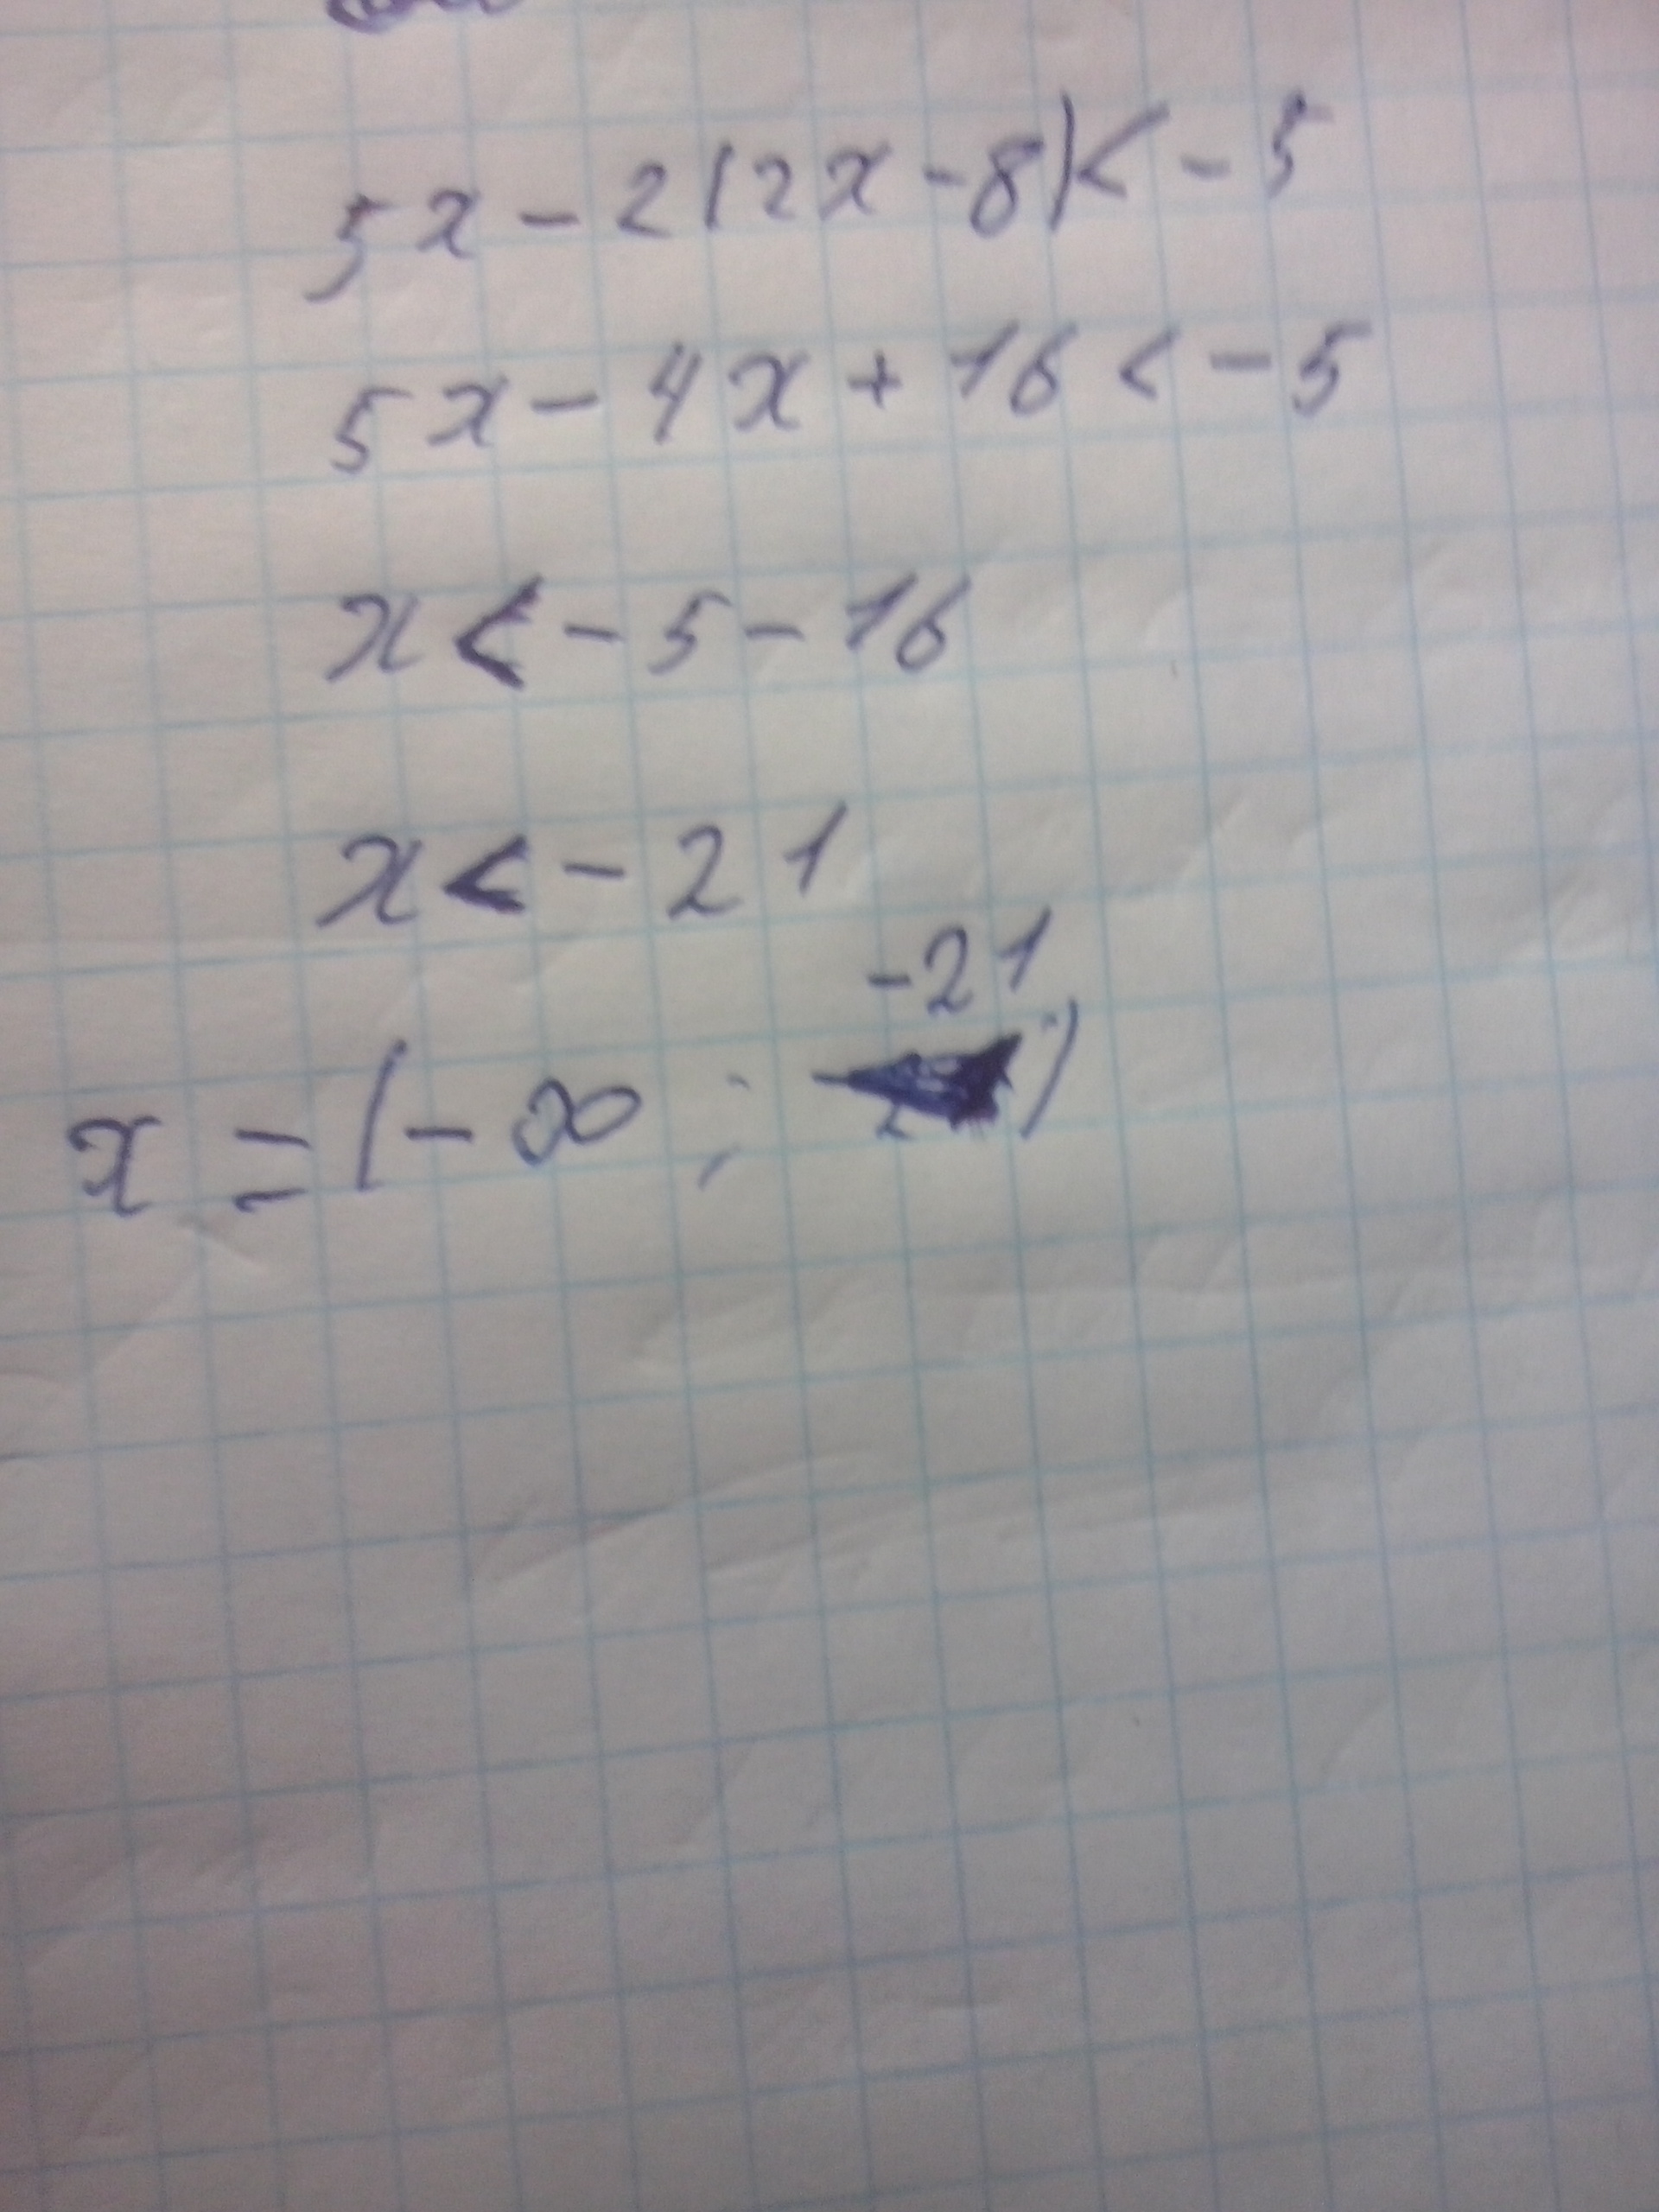 5x - 2(2x - 8) < - 5
5x - 4x + 16 < - 5
x < - 5 - 16
x < - 21
-21
x = (- ∞ ; )